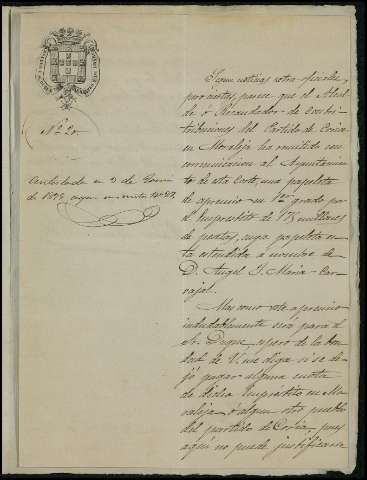 Nº 20.
Contestada en 3 de Junio
de 1875, segun
Segun noticias extra-oficiales
parece que el
ó Recaudador de Contri-
tribuciones del Partido de Coria
en Moraleja ha remitido con
comunicacion al Ayuntamien
to de esta Corte, una papeleta
de apremio en 1er grado por
el Empréstito de 175 millones
de pesetas, cuya papeleta es-
ta estendida a nombre de
D. Angel Mª Car-
vajal.
Mas como este apremio
indudablemente sera para el
Sr. Duque, espero de la bon
dad de V. me diga si se de-
jó pagar alguna cuota
de dicho Empréstito en Mo
raleja ó algun otro pueblo
del partido de Coria, pues
aqui no puede justificarse